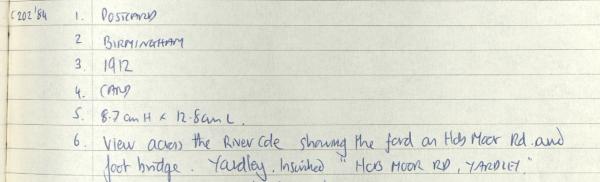 C202'84 1. POSTCARD
2 BIRMINGHAM
3. 1912
4. CARD
5. 8.7 cm H x 12.8 cm L.
6. View across the River Cole showing the ford on Hob Moor Rd. and
foot bridge. Yardley. Inscribed "HOB MOOR RD, YARDLEY."